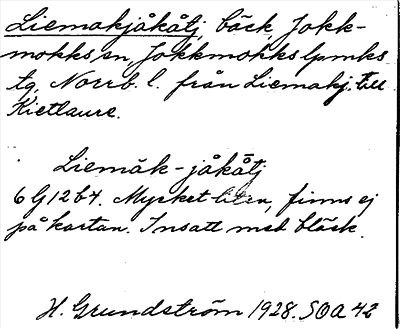 Liemakjåkåtj, bäck, Jokk-
mokks sn, Jokkmokks lpmks
tg, Norrb. l. från Liemakj. till
Kietlaure.
Liemäk-jåkåtj
6 G 12 b 4. Mycket liten, finns ej
på kartan. Insatt med bläck.
H. Grundström 1928. SOA 42